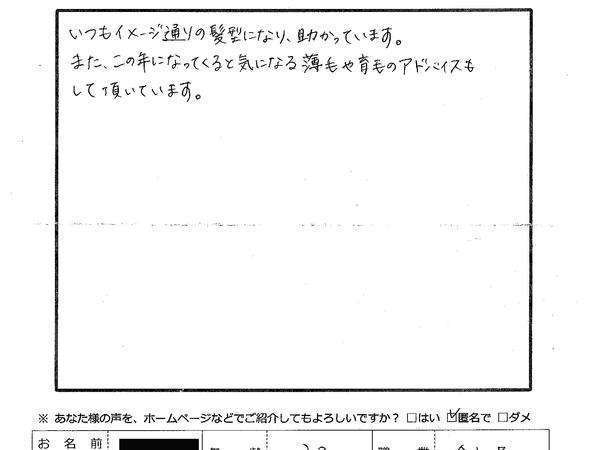 いつもイメージ通りの髪型になり、助かっています。
また、この年になってくると気になる薄毛や育毛のアドバイスも
して頂いています。
※ あなた様の声を、ホームページなどでご紹介してもよろしいですか? □はい ☑匿名で □ダメ
お 名 前